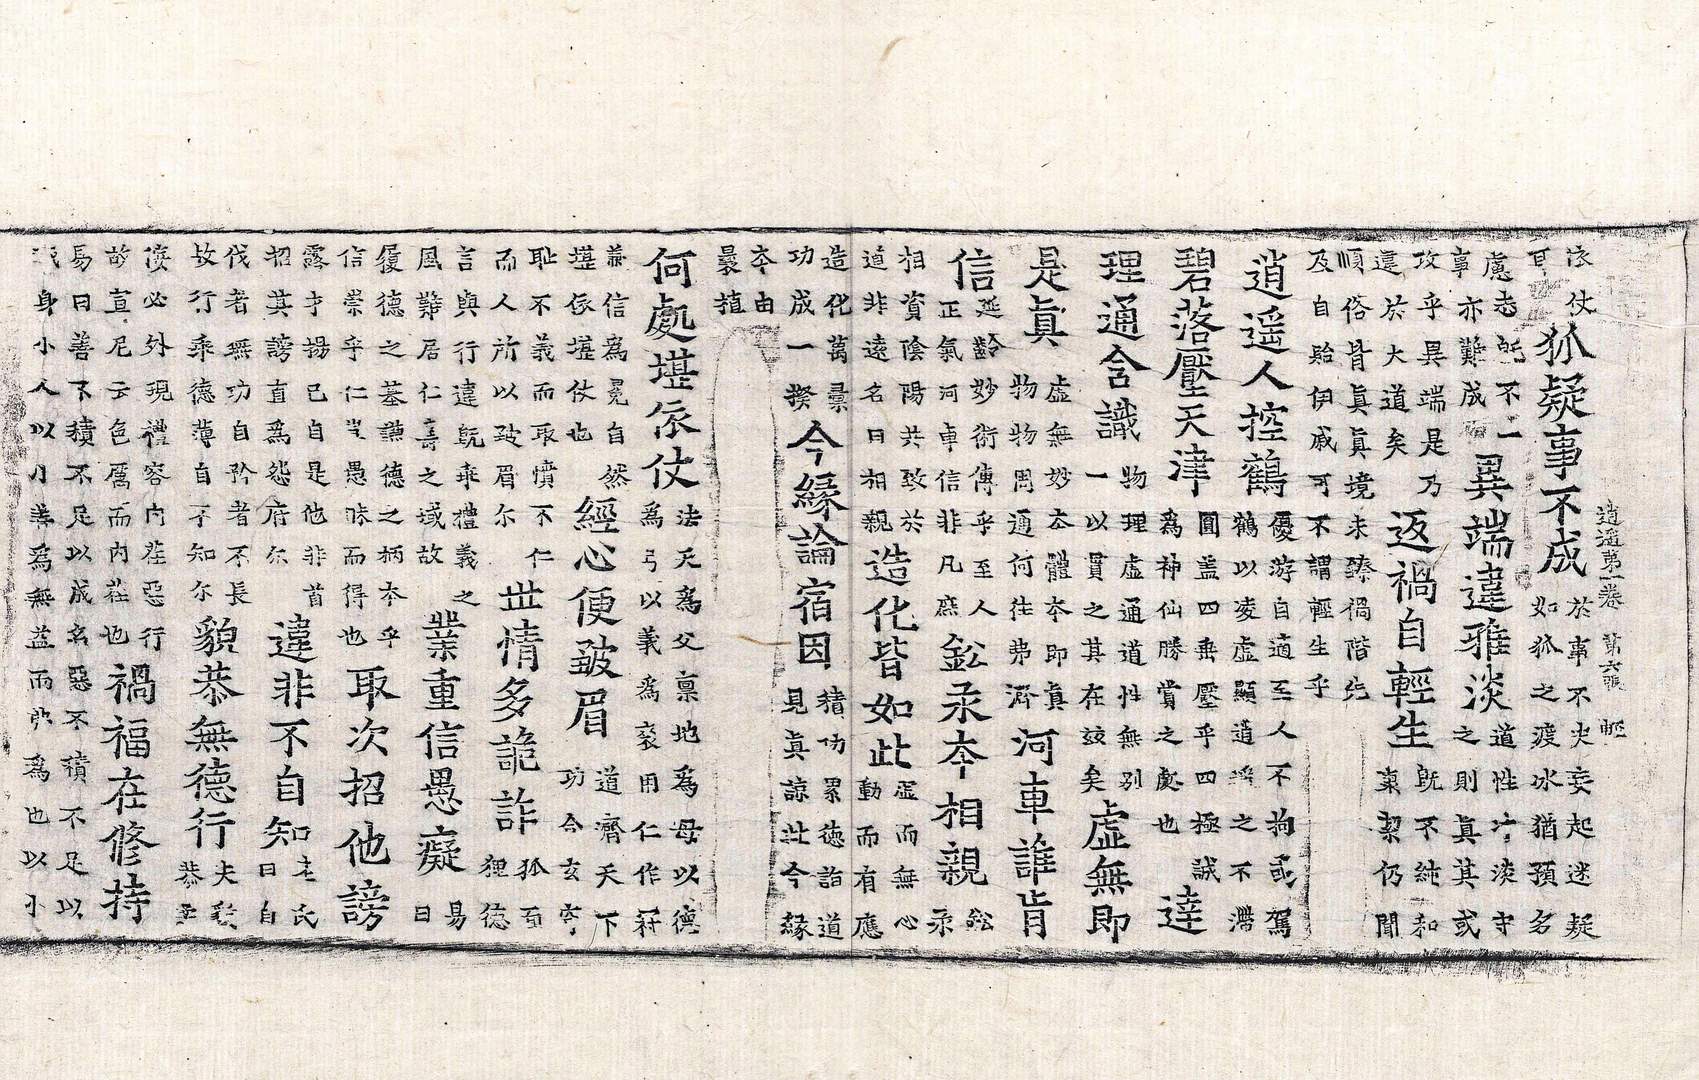 依仗狐疑事不成於事不决妄起迷疑
百慮志既不一如狐之渡冰猶預名
事亦難成異端違雅淡道性冲淡守
攻乎異端是乃之則眞其或
違於大道矣返禍自輕生既不純和
順俗背眞眞境未臻禍階先棄絜仍聞
及自貽伊戚可不謂輕生乎
逍遥人控鶴優游自適至人不拘或駕
鶴以凌虛顯道之不滯
碧落壓天津圓盖四垂壓乎四極誠
爲神仙勝賞之處也達
理通含識物理虛通道性無別
一以貫之其在玆矣虛無即
是眞虛無妙夲體夲即眞
物物周通何往弗濟河車誰肯
信延齡妙術傳乎至人
正氣河車信非凡庶鈆汞夲相親鈆汞
相資陰陽共致於
道非遠名曰相親造化皆如此虛而無心
動而有應
造化萬彙
功成一揆今緣論宿因積功累德詣道
見眞諒玆今緣
夲由
曩植
何處堪依仗法天爲父禀地爲母以德
爲弓以義爲裘用仁作
兼信爲冕自然
堪依堪仗也經心便皺眉道濟天下
功合玄穹
耻不義而取憤不仁
而人所以皺眉尓世情多詭詐狐
狸德
言與行違旣乖禮義之
風難居仁壽之域故業重信愚癡易曰
履德之基謙德之柄夲乎
信崇乎仁豈愚昧而得也取次招他謗
露才揚己自是他非首
招其謗直爲怨府尓違非不自知老氏曰自
伐者無功自矜者不長
故行乖德薄自不知尓貌恭無德行夫
恭
後必外現禮容内荏惡行
故宣尼云色厲而内荏也禍福在修持
易曰善不積不足以成名惡不積不足以
滅身小人以小善爲無益而弗爲也以小
逍遥第一卷 第六張